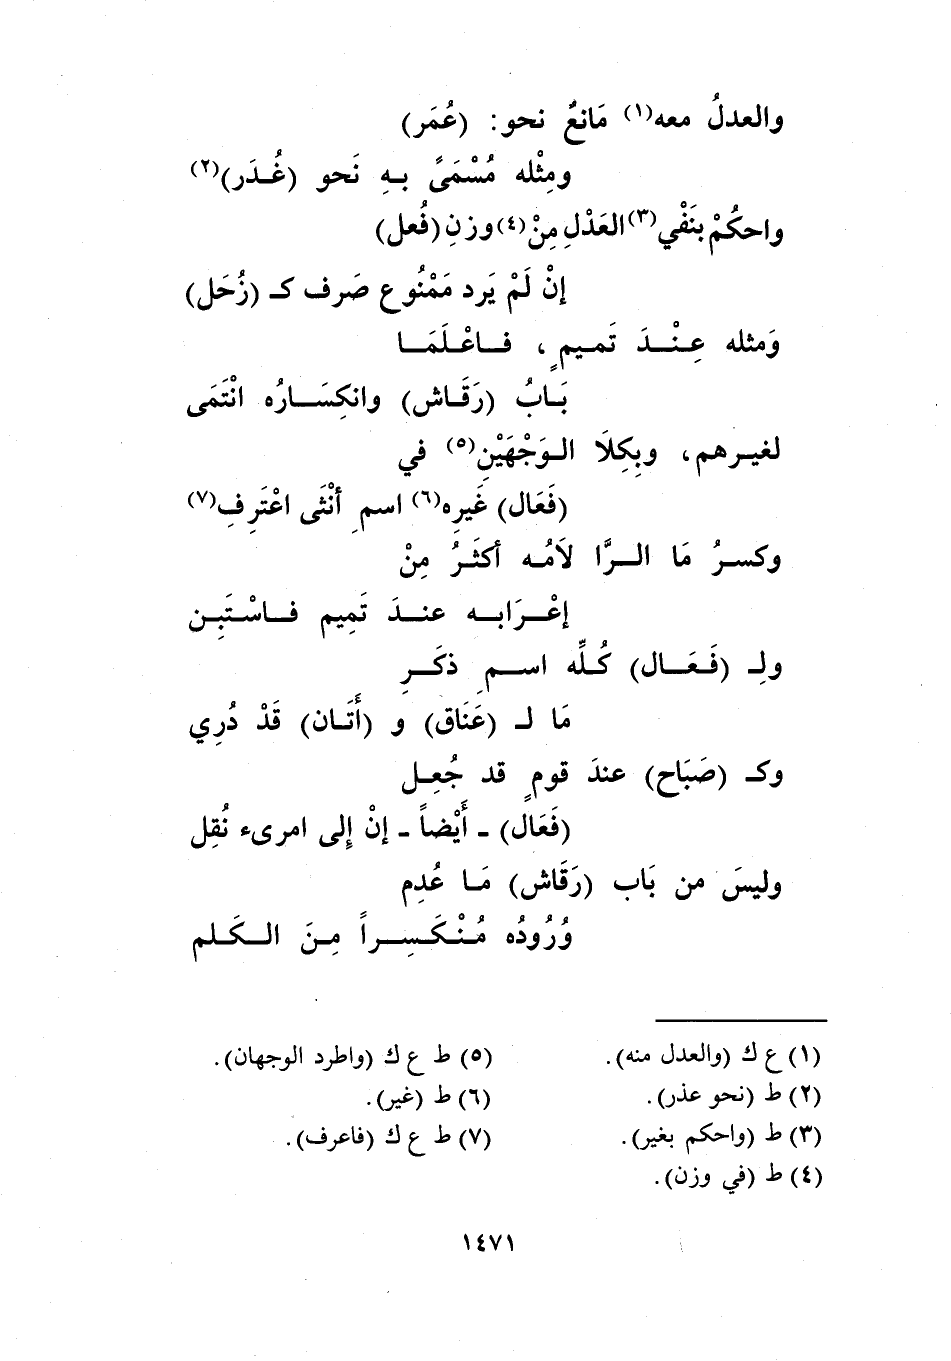 والعدلُ معه(١) مَانعٌ نحو: (عُمَر)
ومِثْله مُسْمَىً بهِ نَحو (غُدَر)(٢)
واحكُمْ بنَفْيِ(٣) العَدْلِ مِنْ(٤) وزنِ (فُعل)
إنْ لَمْ يَرد مَمْنُوع صَرف كـ (زُحَل)
وَمثله عِنْدَ تَميمٍ، فاعْلَمَا
بَابُ (رَقَاش) وانكِسَارُه انْتَمَى
لغيرهم، وبِكِلاَ الوَجْهَيْنِ(٥) في
(فَعَال) غَيرِه(٦) اسمِ أنْثَى اعْتَرِفِ(٧)
وكسرُ مَا الرَّا لاَمُه أكثَرُ مِنْ
إعْرَابه عندَ تَمِيم فاسْتَبِن
ولِـ (فَعَال) كُلِّه اسمِ ذكَرِ
مَا لـ (عَنَاق) و (أَتَان) قَدْ دُرِي
وكـ (صَبَاح) عندَ قومٍ قد جُعِل
(فَعَال) - أَيْضاً - إنْ إِلى امرىء نُقِل
وليسَ من بَاب (رَقَاش) مَا عُدِم
وُرُودُه مُنْكَسِراً مِنَ الكَلم
(١) ع ك (والعدل منه).
(٢) ط (نحو عذر).
(٣) ط (واحكم بغير).
(٤) ط (في وزن).
(٥) ط ع ك (واطرد الوجهان).
(٦) ط (غير).
(٧) ط ع ك (فاعرف).
١٤٧١